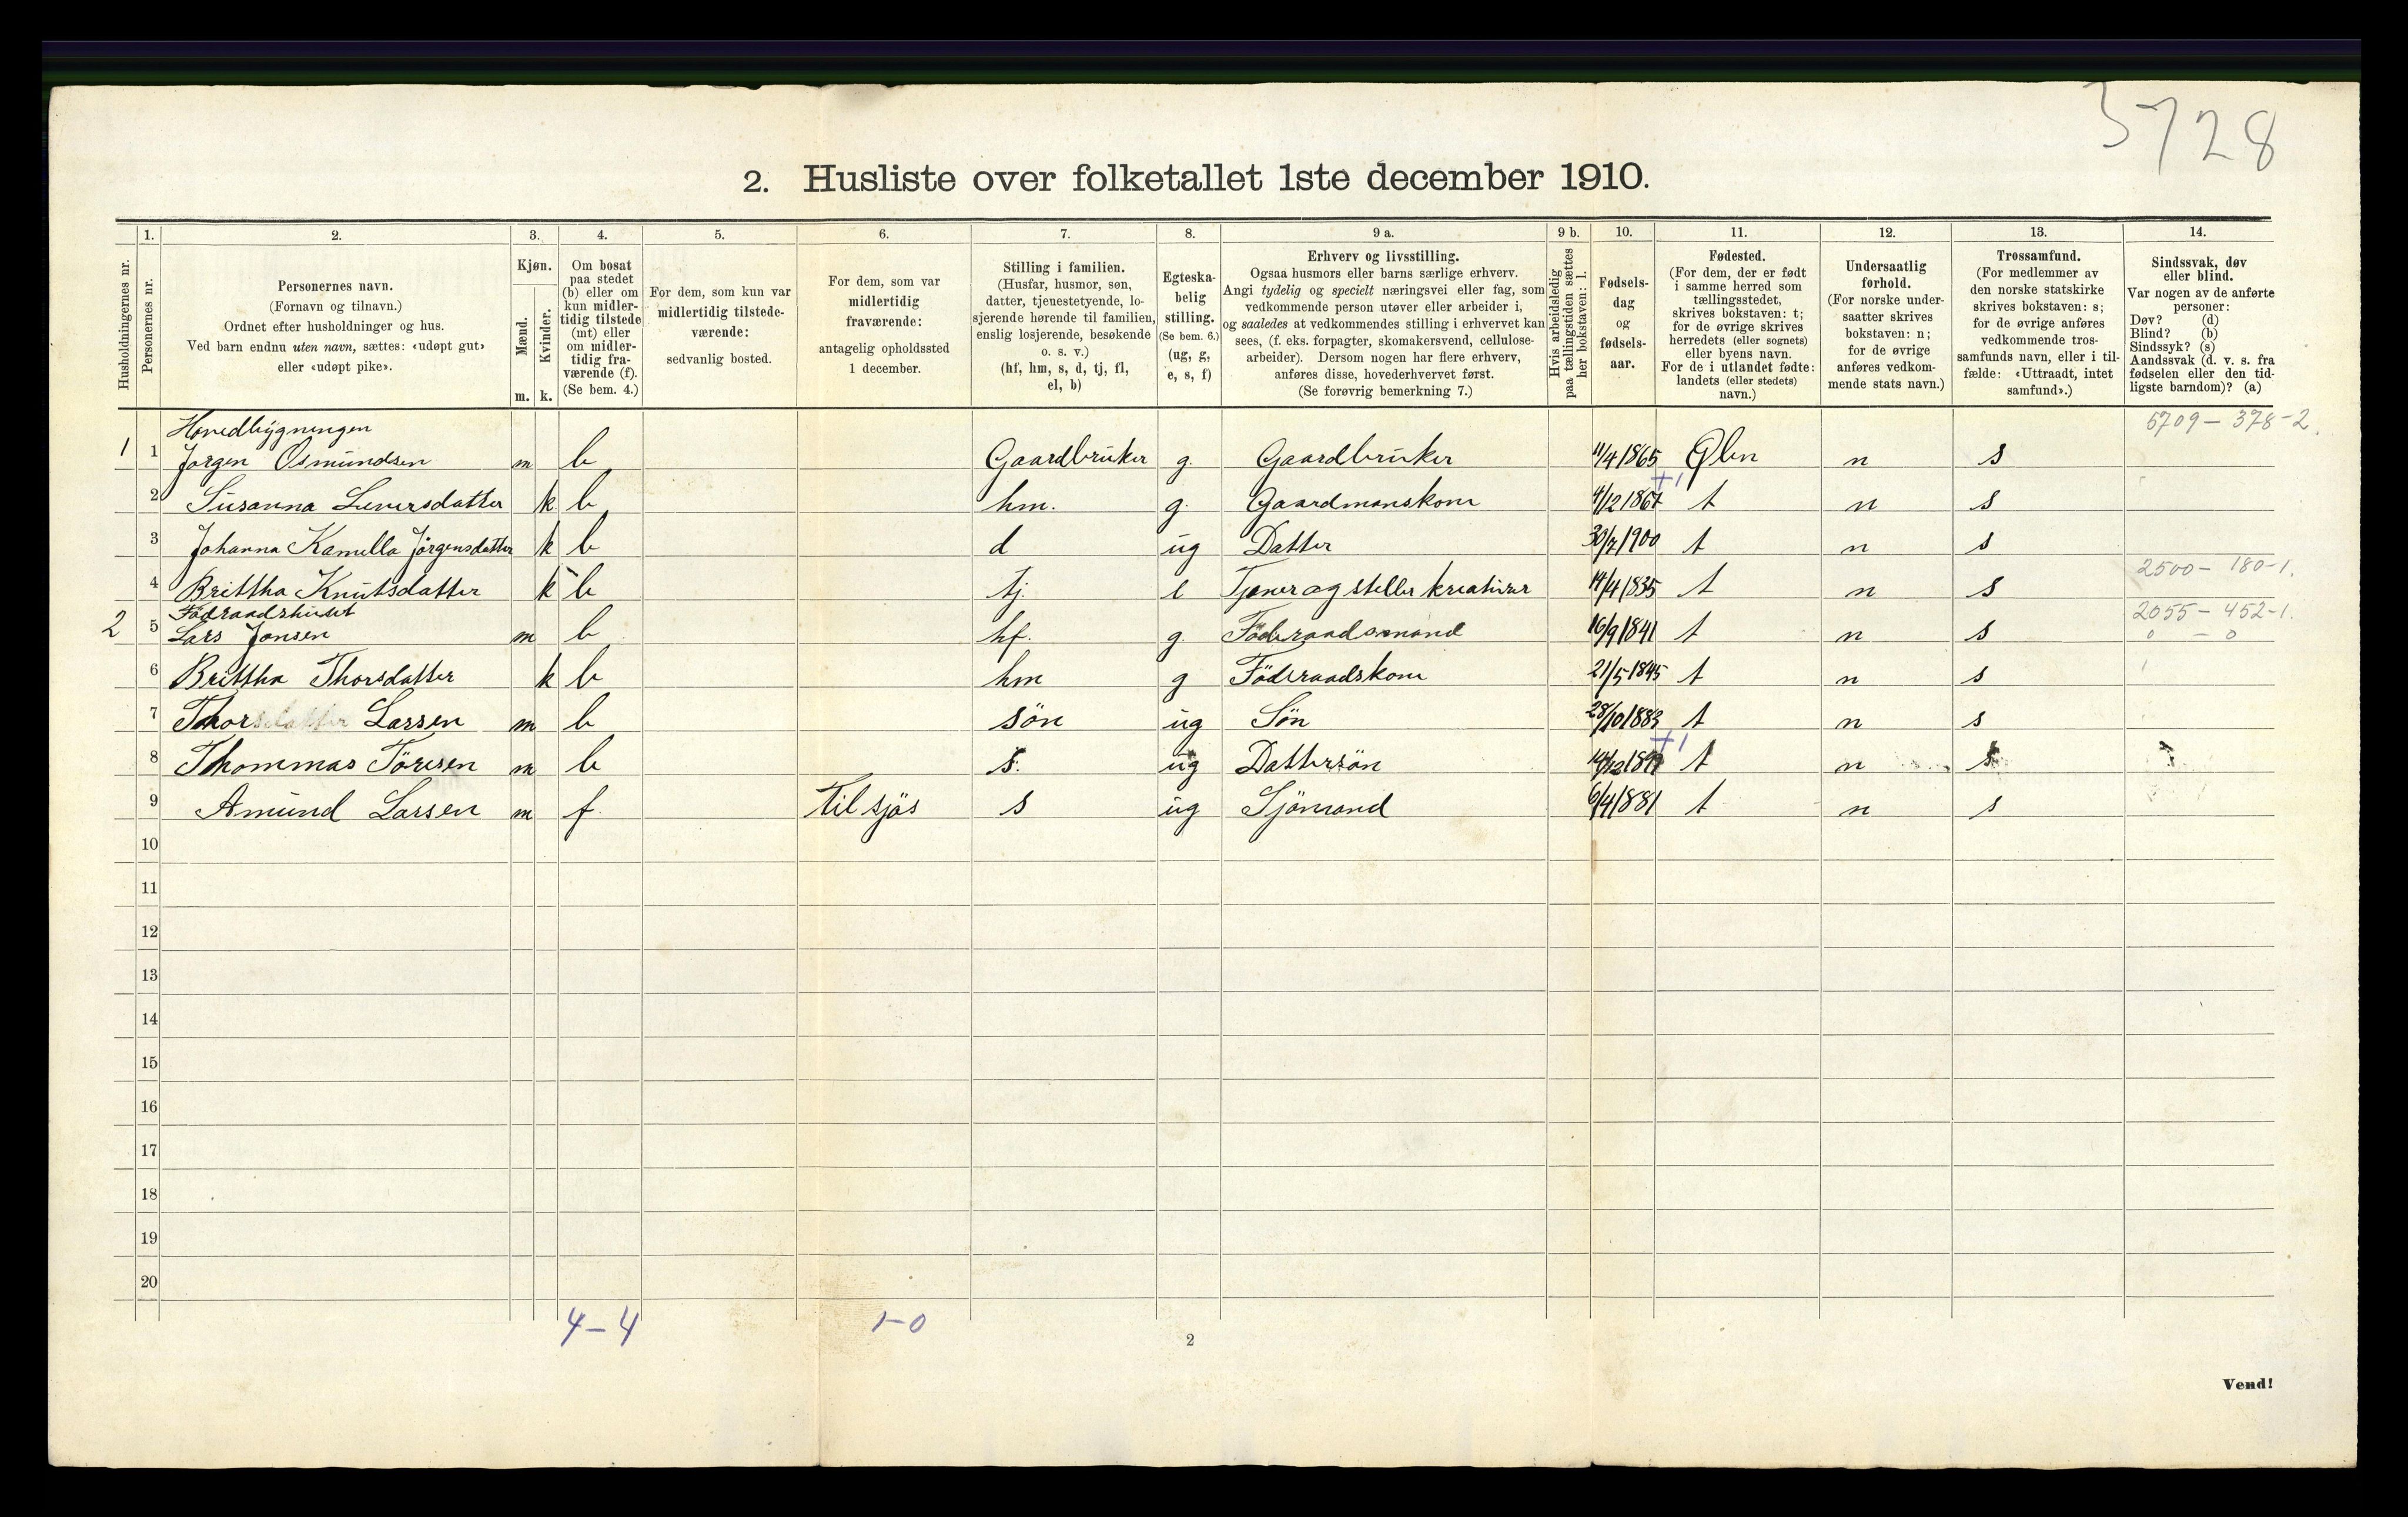 5728
2. Husliste over folketallet 1ste december 1910.
Husholdningernes nr.
1.
Personernes nr.
2.
Personernes navn.
(Fornavn og tilnavn.)
Ordnet efter husholdninger og hus.
Ved barn endnu uten navn, sættes: «udøpt gut»
eller «udøpt pike».
3.
Kjøn.
Mænd.
Kvinder.
m. k.
4.
Om bosat
paa stedet
(b) eller om
kun midler-
tidig tilstede
(mt) eller
om midler-
tidig fra-
værende (f).
(Se bem. 4.)
5.
For dem, som kun var
midlertidig tilstede-
værende:
sedvanlig bosted.
6.
For dem, som var
midlertidig
fraværende:
antagelig opholdssted
1 december.
7.
Stilling i familien.
(Husfar, husmor, søn,
datter, tjenestetyende, lo-
sjerende hørende til familien,
enslig losjerende, besøkende
o. s. v.)
(hf, hm, s, d, tj, fl,
el, b)
8.
Egteska-
belig
stilling.
(Se bem. 6.)
(ug, g,
e, s, f)
9 a.
Erhverv og livsstilling.
Ogsaa husmors eller barns særlige erhverv.
Angi tydelig og specielt næringsvei eller fag, som
vedkommende person utøver eller arbeider i,
og saaledes at vedkommendes stilling i erhvervet kan
sees, (f. eks. forpagter, skomakersvend, cellulose-
arbeider). Dersom nogen har flere erhverv,
anføres disse, hovederhvervet først.
(Se forøvrig bemerkning 7.)
9 b.
Hvis arbeidsledig
paa tællingstiden sættes
her bokstaven: l.
10.
Fødsels-
dag
og
fødsels-
aar.
11.
Fødested.
(For dem, der er født
i samme herred som
tællingsstedet,
skrives bokstaven: t;
for de øvrige skrives
herredets (eller sognets)
eller byens navn.
For de i utlandet fødte:
landets (eller stedets)
navn.)
12.
Undersaatlig
forhold.
(For norske under-
saatter skrives
bokstaven: n;
for de øvrige
anføres vedkom-
mende stats navn.)
13.
Trossamfund.
(For medlemmer av
den norske statskirke
skrives bokstaven: s;
for de øvrige anføres
vedkommende tros-
samfunds navn, eller i til-
fælde: «Uttraadt, intet
samfund».)
14.
Sindssvak, døv
eller blind.
Var nogen av de anførte
personer:
Døv? (d)
Blind? (b)
Sindssyk? (s)
Aandssvak (d. v. s. fra
fødselen eller den tid-
ligste barndom)? (a)
Hovedbygningen 5709 - 378-2
1 1 Jørgen Osmundsen m b Gaardbruker g. Gaardbruker 11/4 1865 Ølen n s
+1
2 Susanna Siversdatter k b hm. g. Gaardmanskone 4/12 1867 t n s
3 Johanna Kamilla Jörgensdatter k b d ug Datter 30/7 1900 t n s
2500 - 180-1.
4 Brittha Knutsdatter k b tj. e Tjener og steller kreaturer 14/4 1835 t n s
Föderaadshuset 2055 - 452-1.
2 5 Lars Jonsen m b hf. g Föderaadsmand 16/9 1841 t n s 0 - 0
6 Brittha Thorsdatter k b hm g Föderaadskone 21/5 1845 t n s
7 Thor Larsen m b sön ug Sön 28/10 1883 t n s
+1
8 Thommas Törresen m b s. ug Dattersön 14/12 1899 t n s
9 Amund Larsen m f Til sjös s ug Sjömand 6/4 1881 t n s
10
11
12
13
14
15
16
17
18
19
20
4-4 1-0
2
Vend!